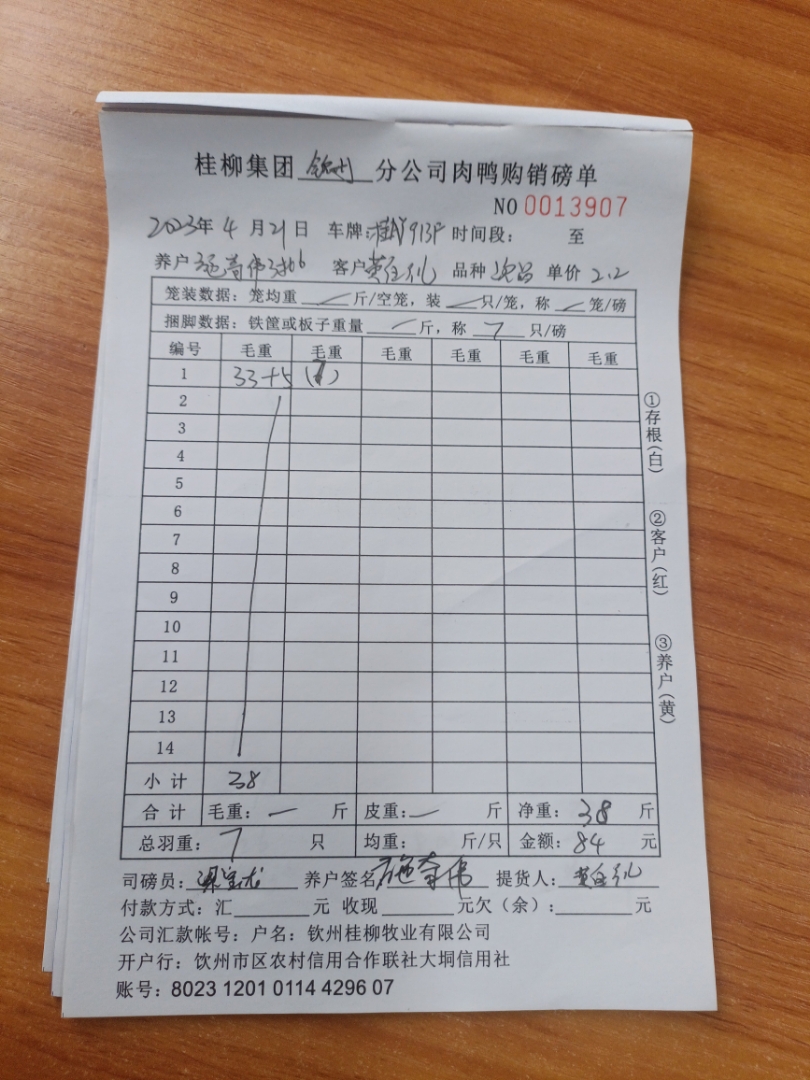 桂柳集团 钦州 分公司肉鸭购销磅单
NO 0013907
2023年 4 月 21 日 车牌: 913F 时间段: 至
养户 施奇伟 客户 黄 品种 次品 单价 2.2
笼装数据: 笼均重 斤/空笼, 装 只/笼, 称 笼/磅
捆脚数据: 铁筐或板子重量 斤, 称 7 只/磅
编号 毛重 毛重 毛重 毛重 毛重 毛重
1 33+5 (7)
2
3
4
5
6
7
8
9
10
11
12
13
14
小 计 38
合 计 毛重: — 斤 皮重: — 斤 净重: 38 斤
总羽重: 7 只 均重: 斤/只 金额: 84 元
司磅员: 养户签名 施奇伟 提货人: 黄
付款方式: 汇 元 收现 元欠 (余): 元
公司汇款帐号: 户名: 钦州桂柳牧业有限公司
开户行: 钦州市区农村信用合作联社大垌信用社
账号: 8023 1201 0114 4296 07
①存根(白)
②客户(红)
③养户(黄)